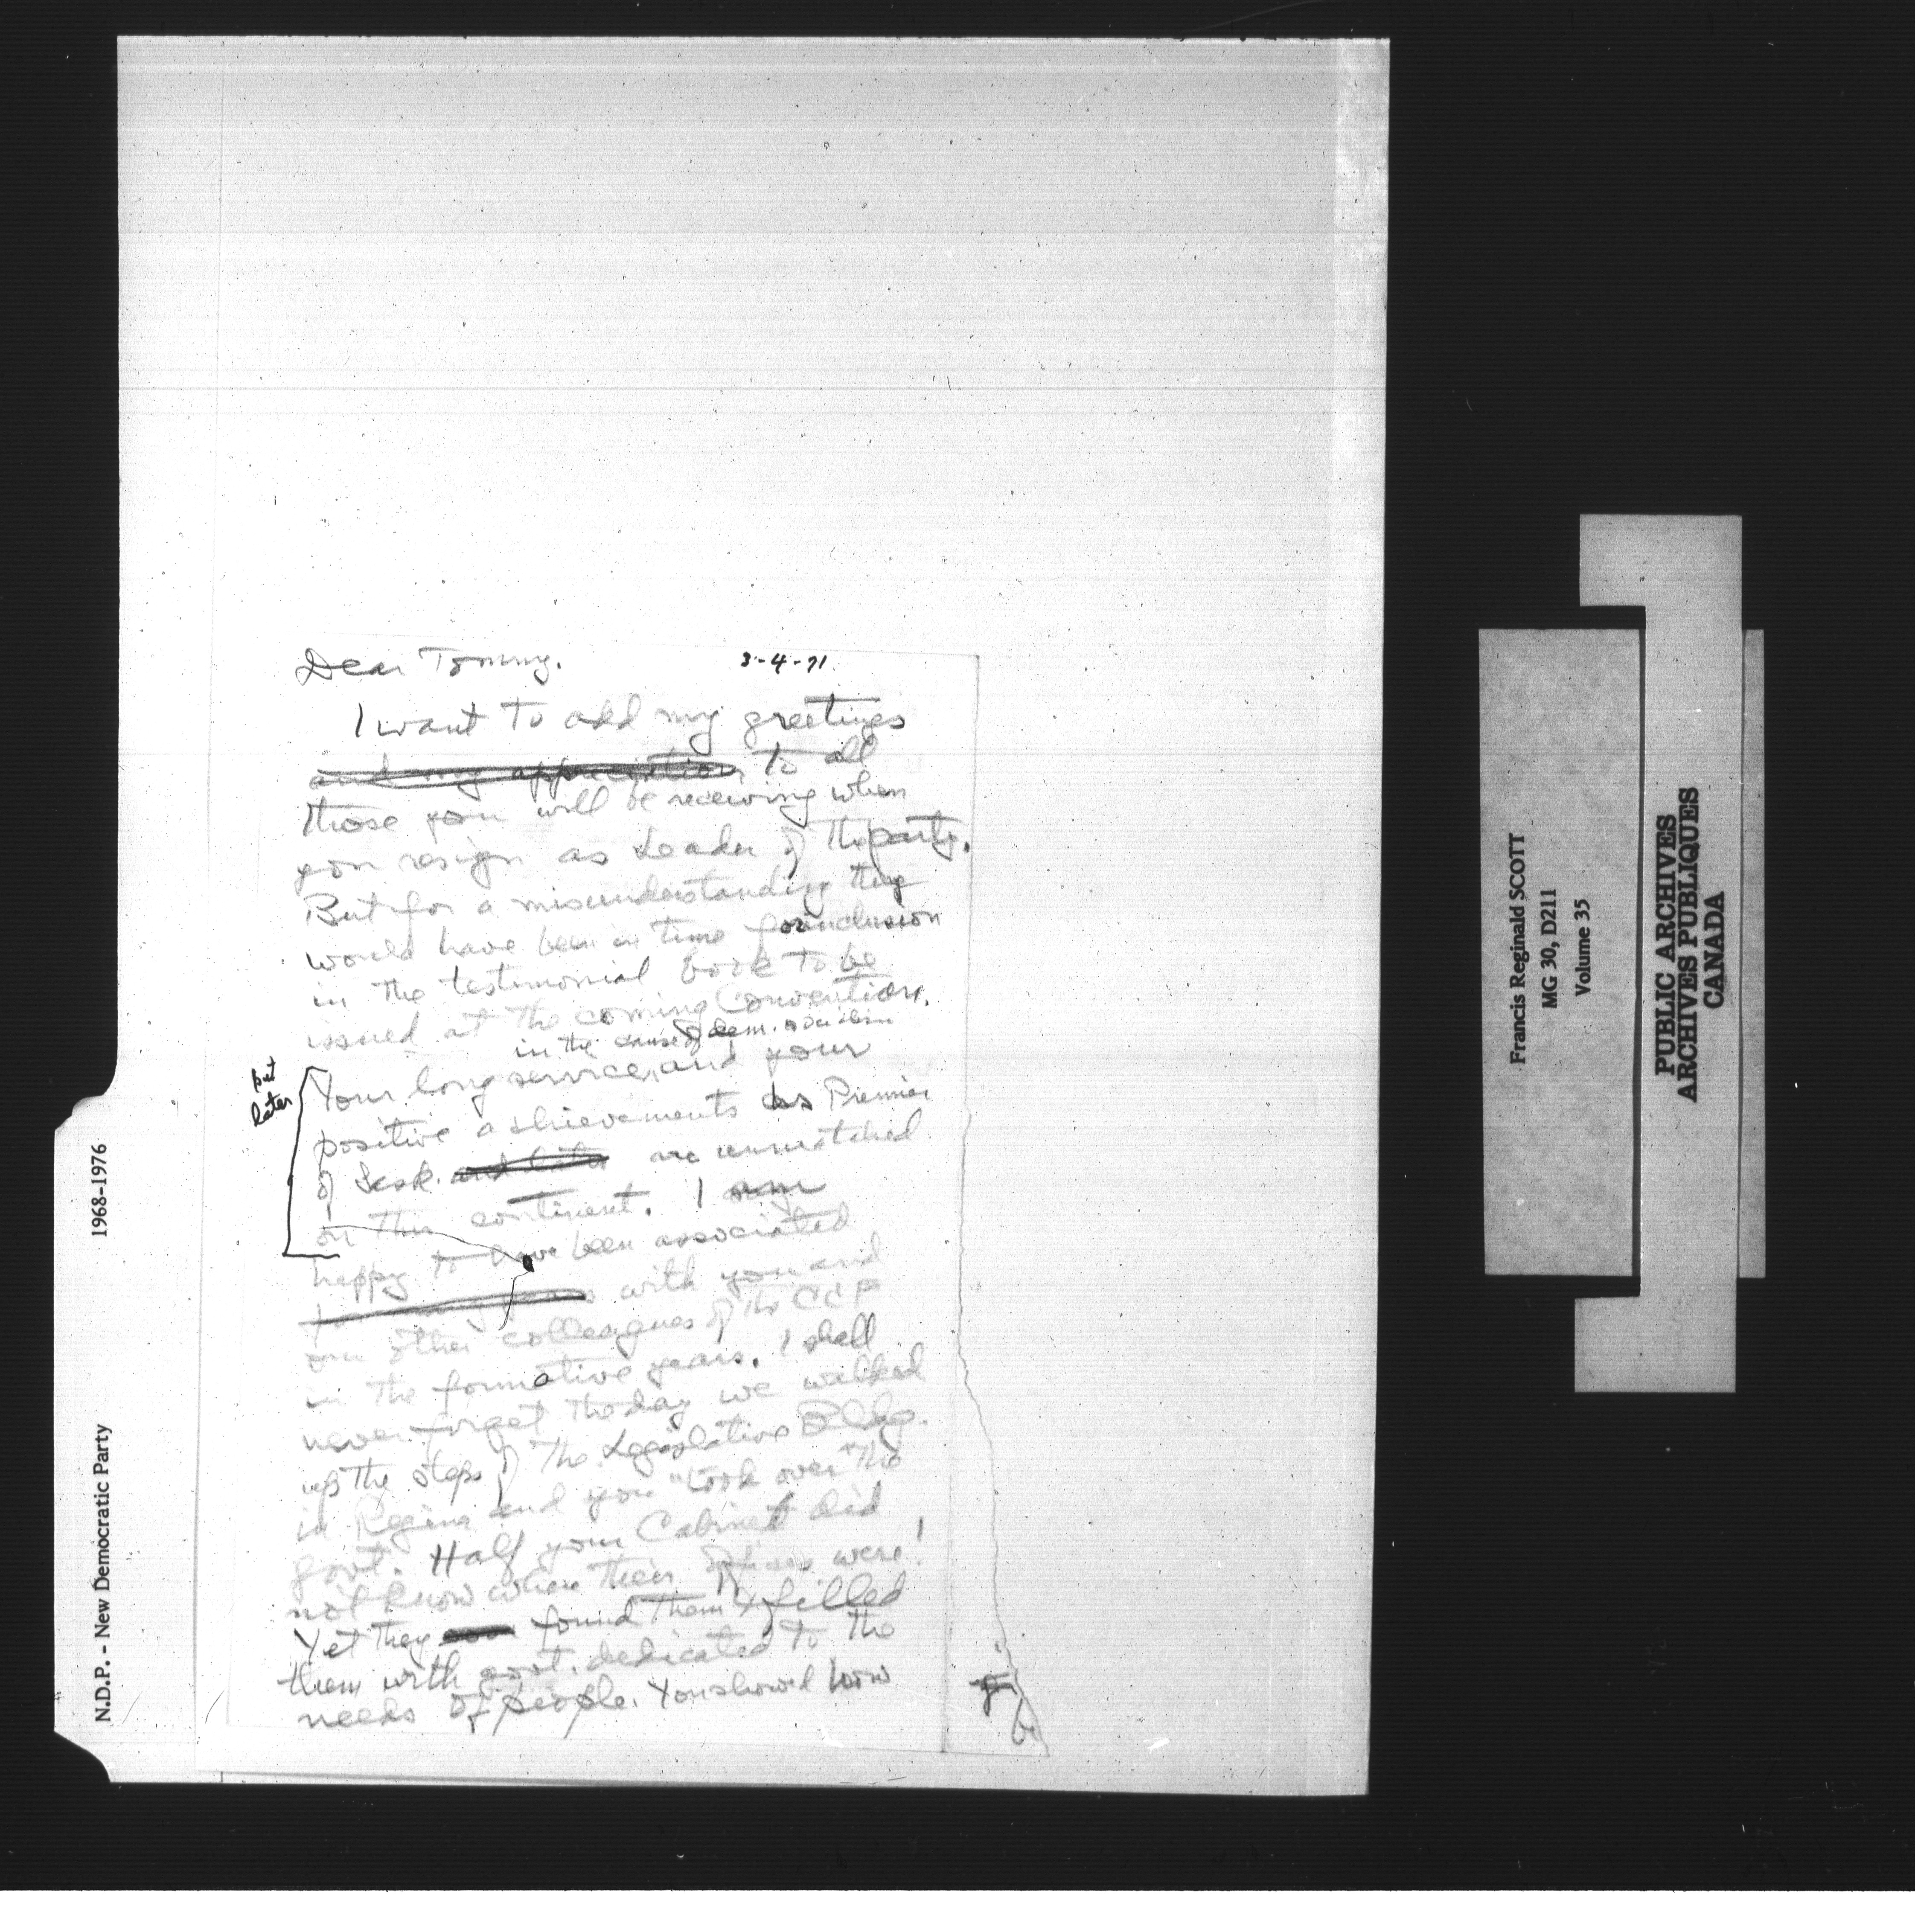 Dear Tommy.
3-4-71
I want to add my greetings
and my appreciation to all
those you will be receiving when
you resign as Leader of the party.
But for a misunderstanding they
would have been in time for inclusion
in the testimonial book to be
issued at the coming Convention.
in the cause of dem. socialism
Your long service, and your
positive achievements as Premier
of Sask. and later are unmatched
on this continent. I am
later
happy to have been associated
for many years with you and
our other colleagues of the CCF
in the formative years. I shall
never forget the day we walked
up the steps of the Legislative Bldg.
in Regina and you "took over" the
govt. Half your Cabinet did
not know where their offices were!
Yet they found them & filled
them with govt. dedicated to the
needs of people. You showed how
N.D.P. - New Democratic Party 1968-1976
Francis Reginald SCOTT
MG 30, D211
Volume 35
PUBLIC ARCHIVES
ARCHIVES PUBLIQUES
CANADA